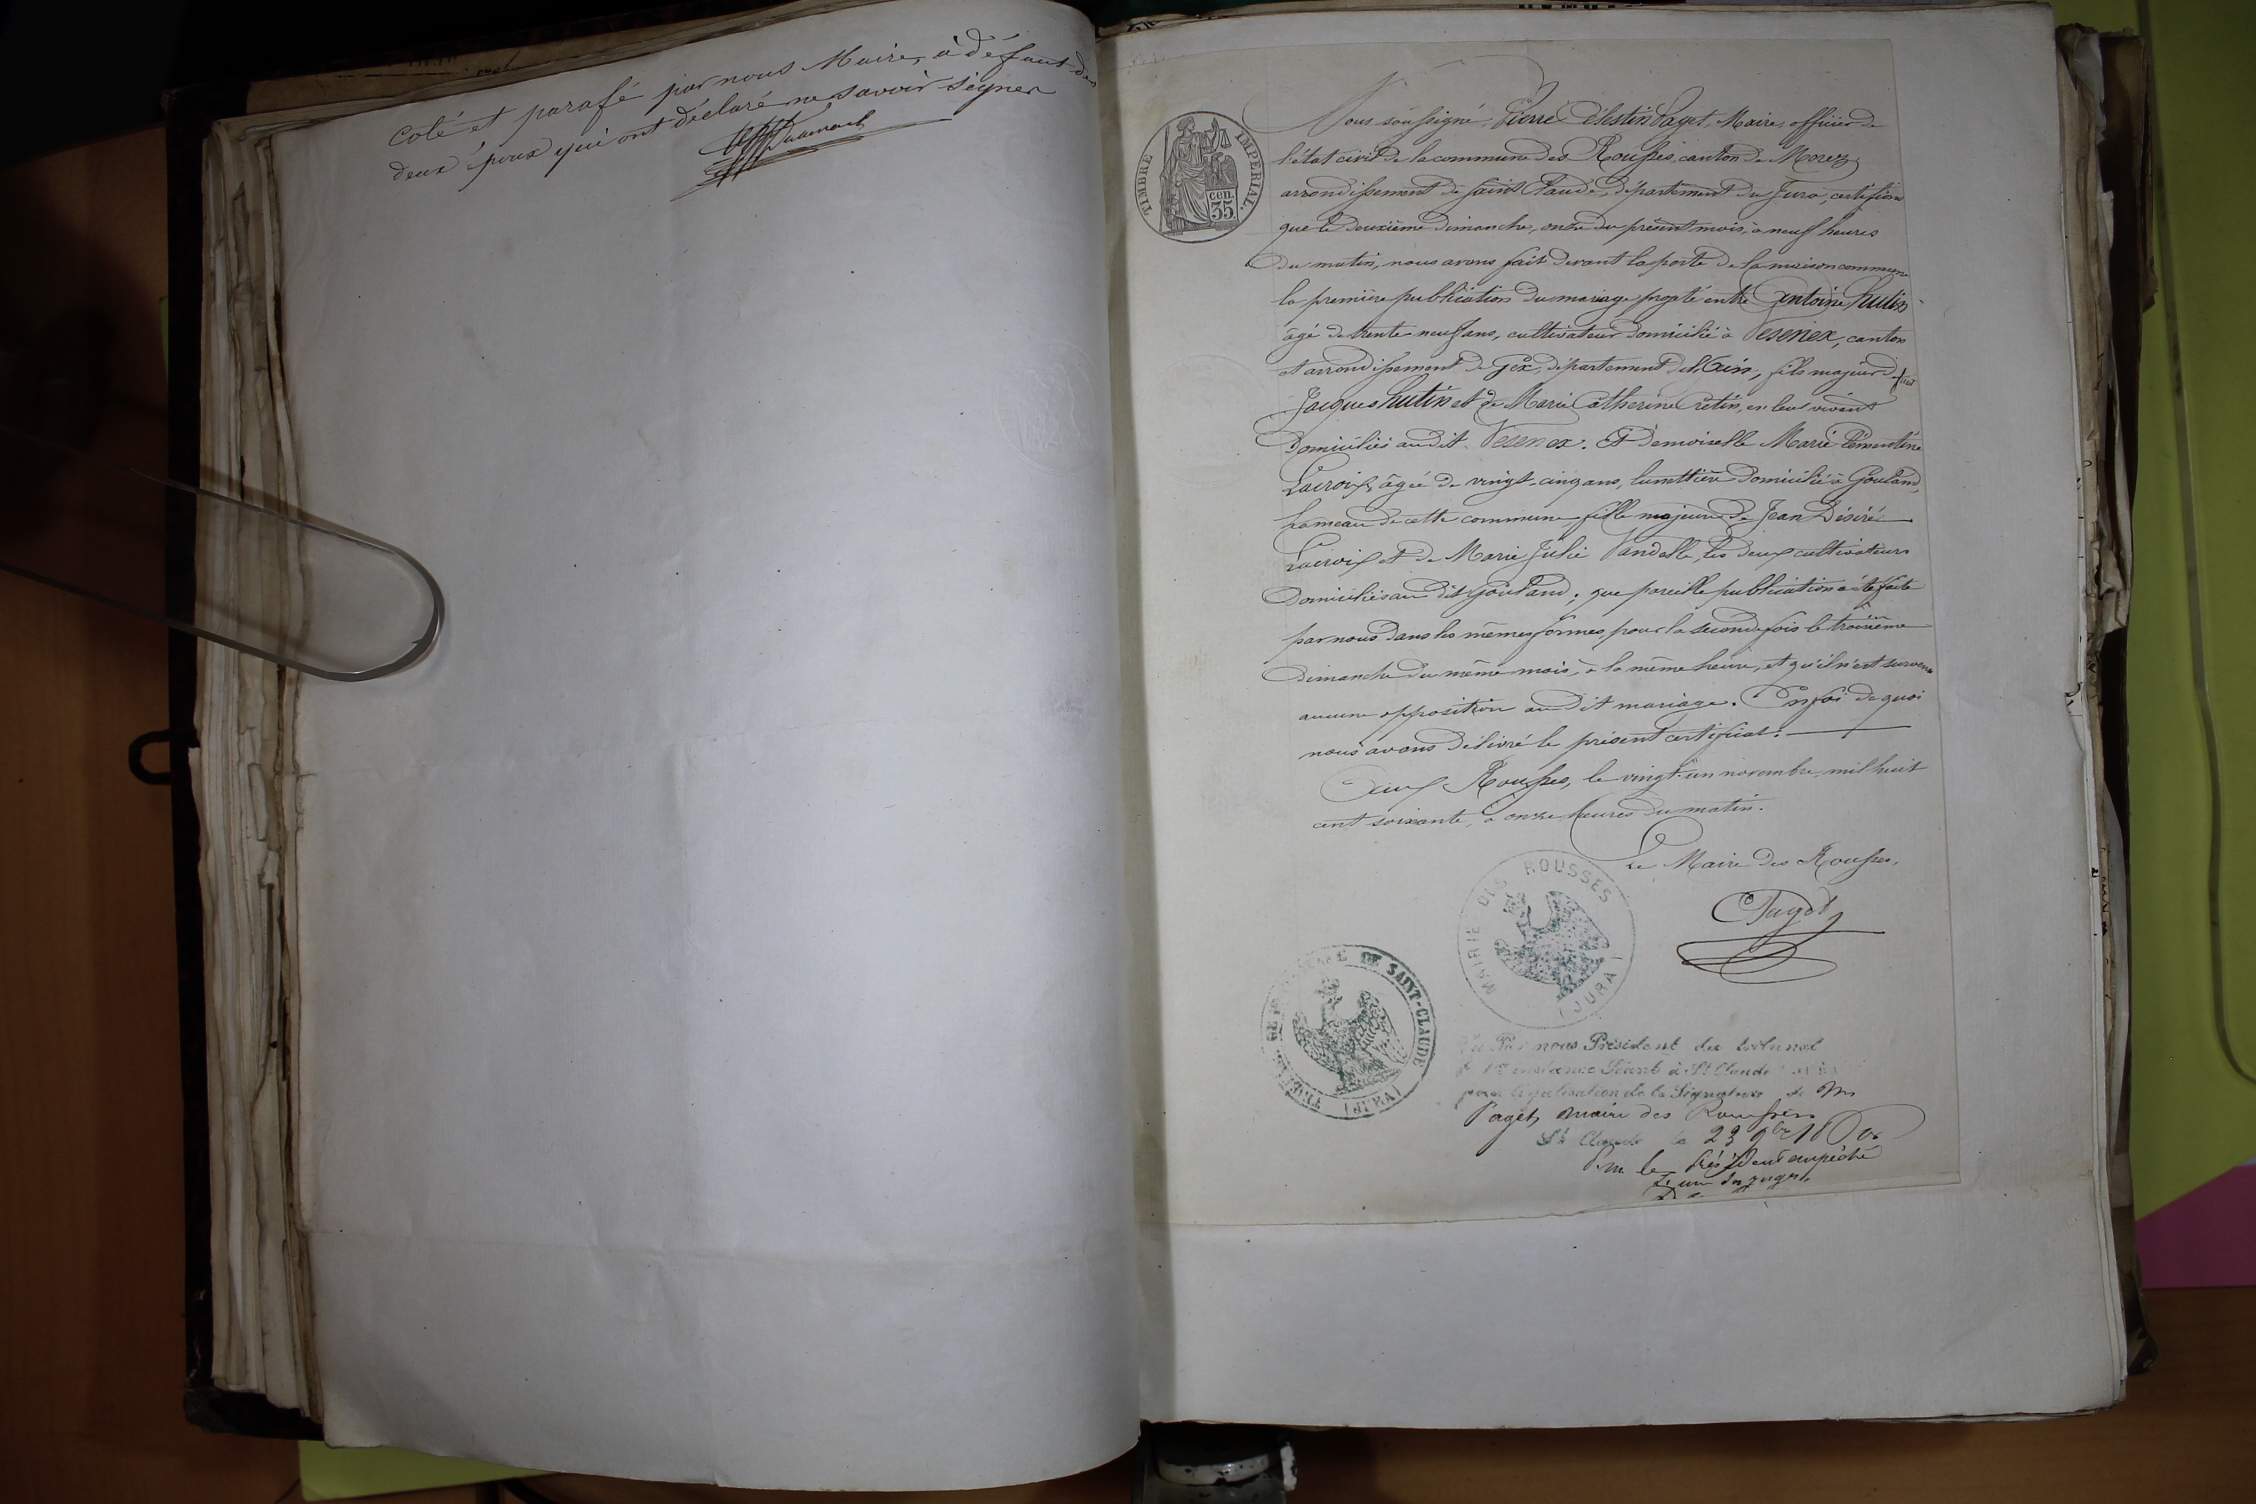 Coté et parafé par nous Maire, à défaut des
deux époux qui ont déclaré ne savoir signer
TIMBRE IMPERIAL.
35 cen.
Nous soussigné Pierre Célestin Paget, Maire, officier de
l'état civil de la commune des Rousses, canton de Morez,
arrondissement de Saint Claude, département du Jura, certifions
que le deuxième dimanche, onze du présent mois, à neuf heures
du matin, nous avons fait devant la porte de la maison commune
la première publication du mariage projeté entre Antoine hutin
âgé de trente neuf ans, cultivateur domicilié à Vesenex, canton
et arrondissement de Gex, département de l'Ain, fils majeur de feu
Jacques hutin et de Marie Catherine Cretin, en leur vivant
domiciliés audit Vesenex. Et Demoiselle Marie Clémentine
Lacroix, âgée de vingt-cinq ans, lunettière domiciliée à Gouland,
hameau de cette commune fille majeure de Jean Désiré
Lacroix et de Marie Julie Vandelle, les deux cultivateurs
domiciliés au dit Gouland; que pareille publication a été faite
par nous dans les mêmes formes, pour la seconde fois le troisième
dimanche du même mois, à la même heure, et qu'il n'est survenu
aucune opposition au dit mariage. En foi de quoi
nous avons délivré le présent certificat.
Aux Rousses, le vingt-un novembre mil huit
cent soixante, à onze heures du matin.
Le Maire des Rousses,
Paget
MAIRIE DES ROUSSES (JURA)
DE SAINT-CLAUDE (JURA)
Vu Par nous Président du tribunal
de 1re instance Séant à St Claude (JURA)
pour légalisation de la Signature de Mr
Paget, maire des Rousses
St Claude le 23 9bre 1860
Pour le Président empêché
L'un des juges